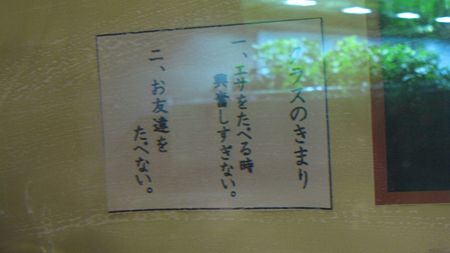 クラスのきまり
一、エサをたべる時
興奮しすぎない。
二、お友達を
たべない。